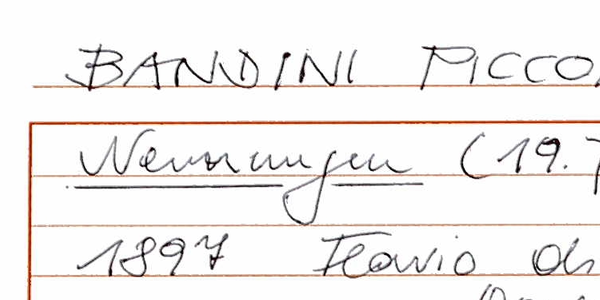 BANDINI PICCO
Nennungen (19.
1897 Flavio di